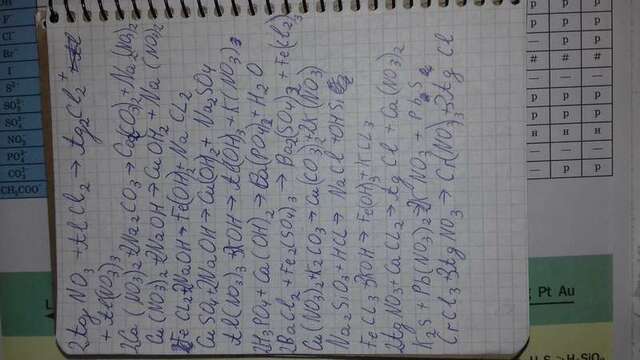 CH₃COO⁻
CO₃²⁻
PO₄³⁻
NO₃⁻
2AgNO₃ + AlCl₂ → Ag₂Cl₂ +
+ Al(NO₃)₃
2Ca(NO₃)₂ + 2Na₂CO₃ → Ca(CO₃)₂ + Na₂(NO₃)₂
Cu(NO₃)₂ + 2NaOH → CuOH₂ + Na(NO₃)₂
FeCl₂ + 2NaOH → Fe(OH)₂ + NaCl₂
CuSO₄ + 2NaOH → Cu(OH)₂ + Na₂SO₄
Al(NO₃)₃ + 3KOH → Al(OH)₃ + K(NO₃)₃
2H₃PO₄ + Ca(OH)₂ → Ca(PO₄)₂ + H₂O
2BaCl₂ + Fe₂(SO₄)₃ → Ba₂(SO₄)₃ + Fe(Cl₂)₃
Cu(NO₃)₂ + K₂CO₃ → Cu(CO₃)₂ + 2K(NO₃)
Na₂SiO₃ + HCl → NaCl + OHSi
FeCl₃ + 3KOH → Fe(OH)₃ + KCl₃
2AgNO₃ + CaCl₂ → AgCl + Ca(NO₃)₂
K₂S + Pb(NO₃)₂ → 2KNO₃ + Pb₂S₂
CrCl₃ + 3AgNO₃ → Cr(NO)₃ + 3AgCl
Pt Au